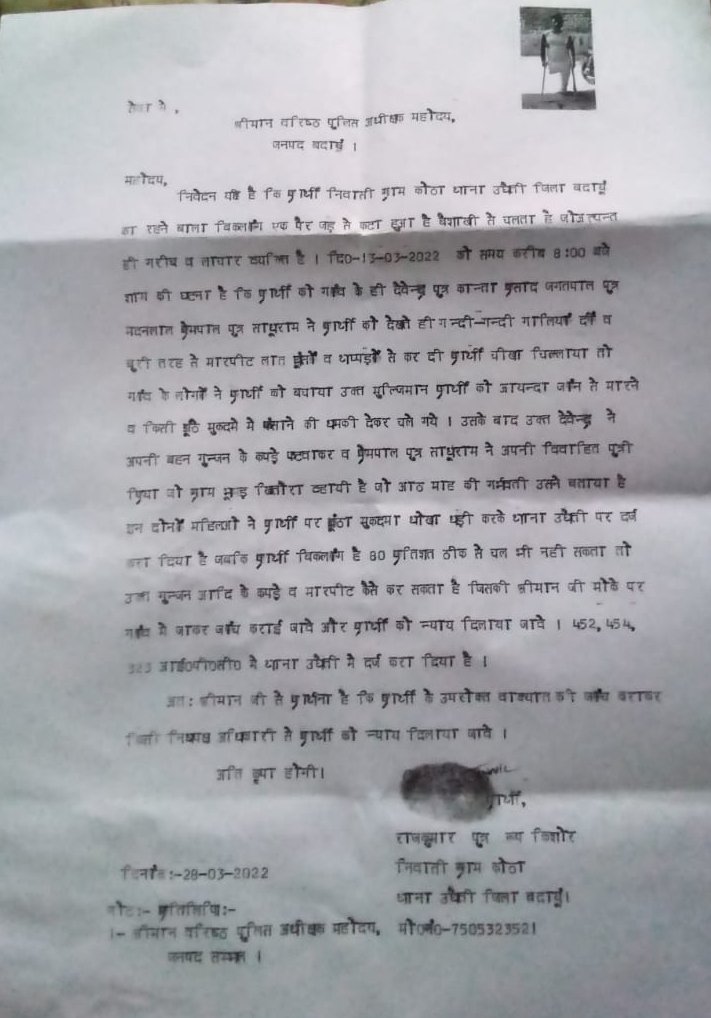 सेवा मे ,
श्रीमान वरिष्ठ पुलित अधीक्षक महोदय,
जनपद बदायूं ।
महोदय,
निवेदन यह है कि प्रार्थी निवाती ग्राम कोठा थाना उघैती जिला बदायूं
का रहने बाला विकलांग एक पैर जड़ ते कटा हुआ है बैशाखी ते चलता है जोअत्यन्त
ही गरीब व लाचार व्यक्ति है । दि0-13-03-2022 को समय करीब 8:00 बजे
शाम की घटना है कि प्रार्थी को गांव के ही देवेन्द्र पुत्र कान्ता प्रताद जगतपाल पुत्र
मदनलाल प्रेमपाल पुत्र ताधूराम ने प्रार्थी को देखते ही गन्दी-गन्दी गालियां दीं व
बुरी तरह ते मारपीट लात घूंतों व थप्पड़ों ते कर दी प्रार्थी चीखा चिल्लाया तो
गांव के लोगों ने प्रार्थी को बचाया उक्त मुल्जिमान प्रार्थी को आयन्दा जान ते मारने
व किती झूठे मुकदमे मे फंसाने की धमकी देकर चले गये । उसके बाद उक्त देवेन्द्र ने
अपनी बहन गुन्जन के कपड़े फटवाकर व प्रेमपाल पुत्र ताधूराम ने अपनी विवाहित पुत्री
प्रिया जो ग्राम वितौरा व्हायी है जो आठ माह की गर्भवती उसने बताया है
इन दोनों महिलाओ ने प्रार्थी पर झूंठा मुकदमा धोखा धड़ी करके थाना उघैती पर दर्ज
करा दिया है जबकि प्रार्थी विकलांग है 80 प्रतिशत ठीक ते चल भी नही सकता तो
उक्त गुन्जन आदि के कपड़े व मारपीट कैते कर सकता है जिसकी श्रीमान जी मौके पर
गांव मे जाकर जांच कराई जावे और प्रार्थी को न्याय दिलाया जावे । 452, 454,
323 आई0पी0ती0 मे थाना उघैती मे दर्ज करा दिया है ।
अत: श्रीमान जी ते प्रार्थना है कि प्रार्थी के उपरोक्त वाक्यात की जांच कराकर
किती निष्पक्ष अधिकारी ते प्रार्थी को न्याय दिलाया जावे ।
अति कृपा होगी।
प्रार्थी,
राजकुमार पुत्र किशोर
दिनांक:-28-03-2022
निवाती ग्राम कोठा
थाना उघैती जिला बदायूं।
नोट:- प्रतिलिपि:-
1- श्रीमान वरिष्ठ पुलित अधीक्षक महोदय,
मो0नं0-7505323521
जनपद सम्भल ।